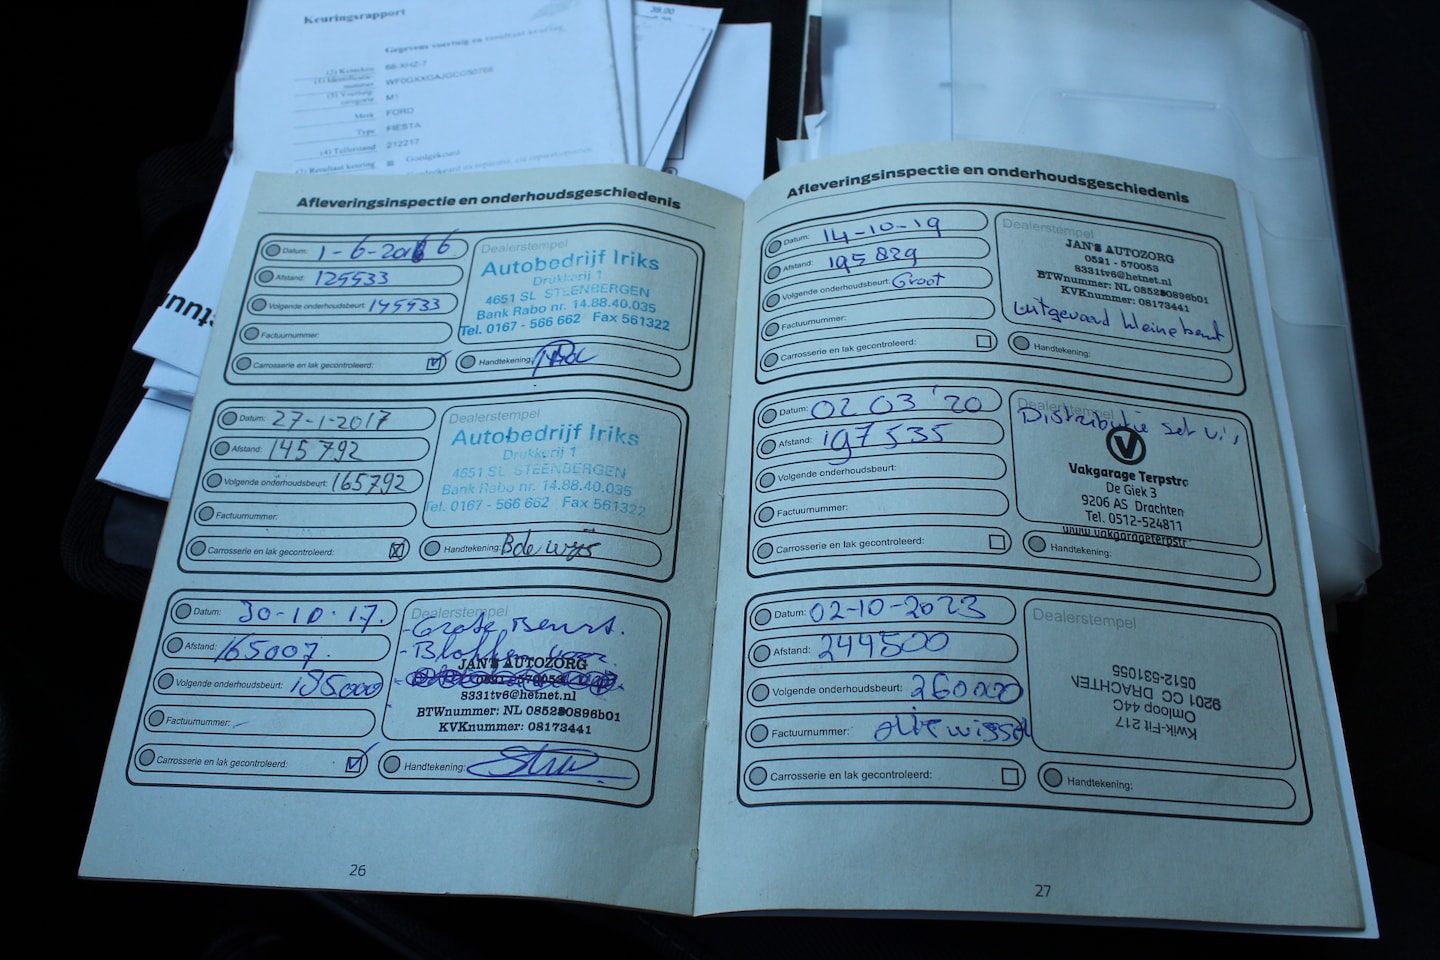 Keuringsrapport
Gegevens voertuig en resultaat keuring
(2) Kenteken 68-XHZ-7
(1) Identificatie-
nummer WF0GXXGAJGCG50768
(5) Voertuig-
categorie M1
Merk FORD
Type FIESTA
(4) Tellerstand 212217
(7) Resultaat keuring Goedgekeurd
39.00
Afleveringsinspectie en onderhoudsgeschiedenis
Datum: 1-6-2016 6.
Afstand: 129933
Volgende onderhoudsbeurt: 149933
Factuurnummer:
Carrosserie en lak gecontroleerd:
Dealerstempel
Autobedrijf Iriks
Drukkerij 1
4651 SL STEENBERGEN
Bank Rabo nr. 14.88.40.035
Tel. 0167 - 566 662 Fax 561322
Handtekening:
Datum: 27-1-2017
Afstand: 145792
Volgende onderhoudsbeurt: 165792
Factuurnummer:
Carrosserie en lak gecontroleerd:
Dealerstempel
Autobedrijf Iriks
Drukkerij 1
4651 SL STEENBERGEN
Bank Rabo nr. 14.88.40.035
Tel. 0167 - 566 662 Fax 561322
Handtekening:
Datum: 30-10-17.
Afstand: 165007.
Volgende onderhoudsbeurt: 185000
Factuurnummer: -
Carrosserie en lak gecontroleerd:
Dealerstempel
- Grote Beurt.
- Blokken voor.
JAN'S AUTOZORG
0521 - 570053
8331tv6@hetnet.nl
BTWnummer: NL 085280896b01
KVKnummer: 08173441
Handtekening:
26
Afleveringsinspectie en onderhoudsgeschiedenis
Datum: 14-10-19
Afstand: 195829
Volgende onderhoudsbeurt: Groot
Factuurnummer:
Carrosserie en lak gecontroleerd:
Dealerstempel
JAN'S AUTOZORG
0521 - 570053
8331tv6@hetnet.nl
BTWnummer: NL 085280896b01
KVKnummer: 08173441
uitgevoerd kleine beurt
Handtekening:
Datum: 02 03 '20
Afstand: 197535
Volgende onderhoudsbeurt:
Factuurnummer:
Carrosserie en lak gecontroleerd:
Dealerstempel
Distributie set
V
Vakgarage Terpstra
De Giek 3
9206 AS Drachten
Tel. 0512-524811
www.vakgarageterpstr
Handtekening:
Datum: 02-10-2023
Afstand: 244500
Volgende onderhoudsbeurt: 260000
Factuurnummer: oliewissel
Carrosserie en lak gecontroleerd:
Dealerstempel
Kwik-Fit 217
Omloop 44C
9201 CC DRACHTEN
0512-531055
Handtekening:
27